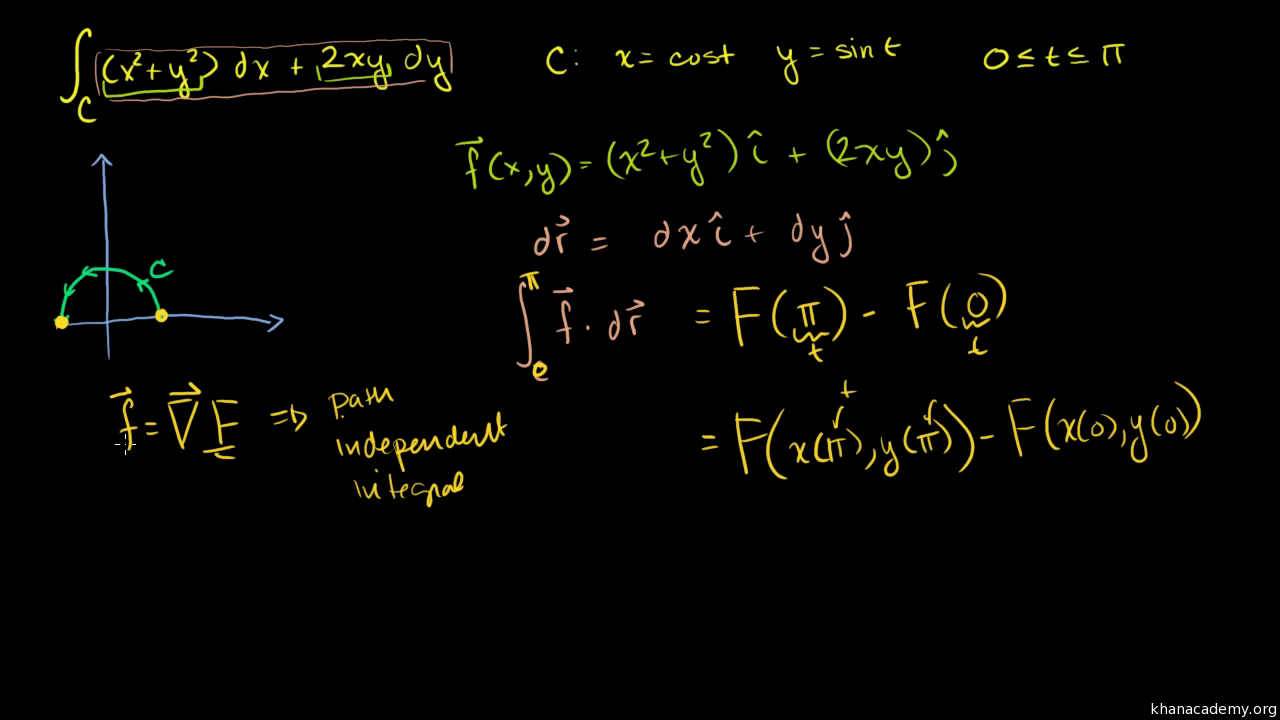 ∫_C (x²+y²) dx + 2xy dy   C: x = cos t   y = sin t   0 ≤ t ≤ π
f⃗(x,y) = (x²+y²) î + (2xy) ĵ
dr⃗ = dx î + dy ĵ
C
∫_0^π f⃗ · dr⃗ = F(π) - F(0)
t   t
f⃗ = ∇⃗F ⇒ path
independent
integral
t
= F(x(π), y(π)) - F(x(0), y(0))
khanacademy.org